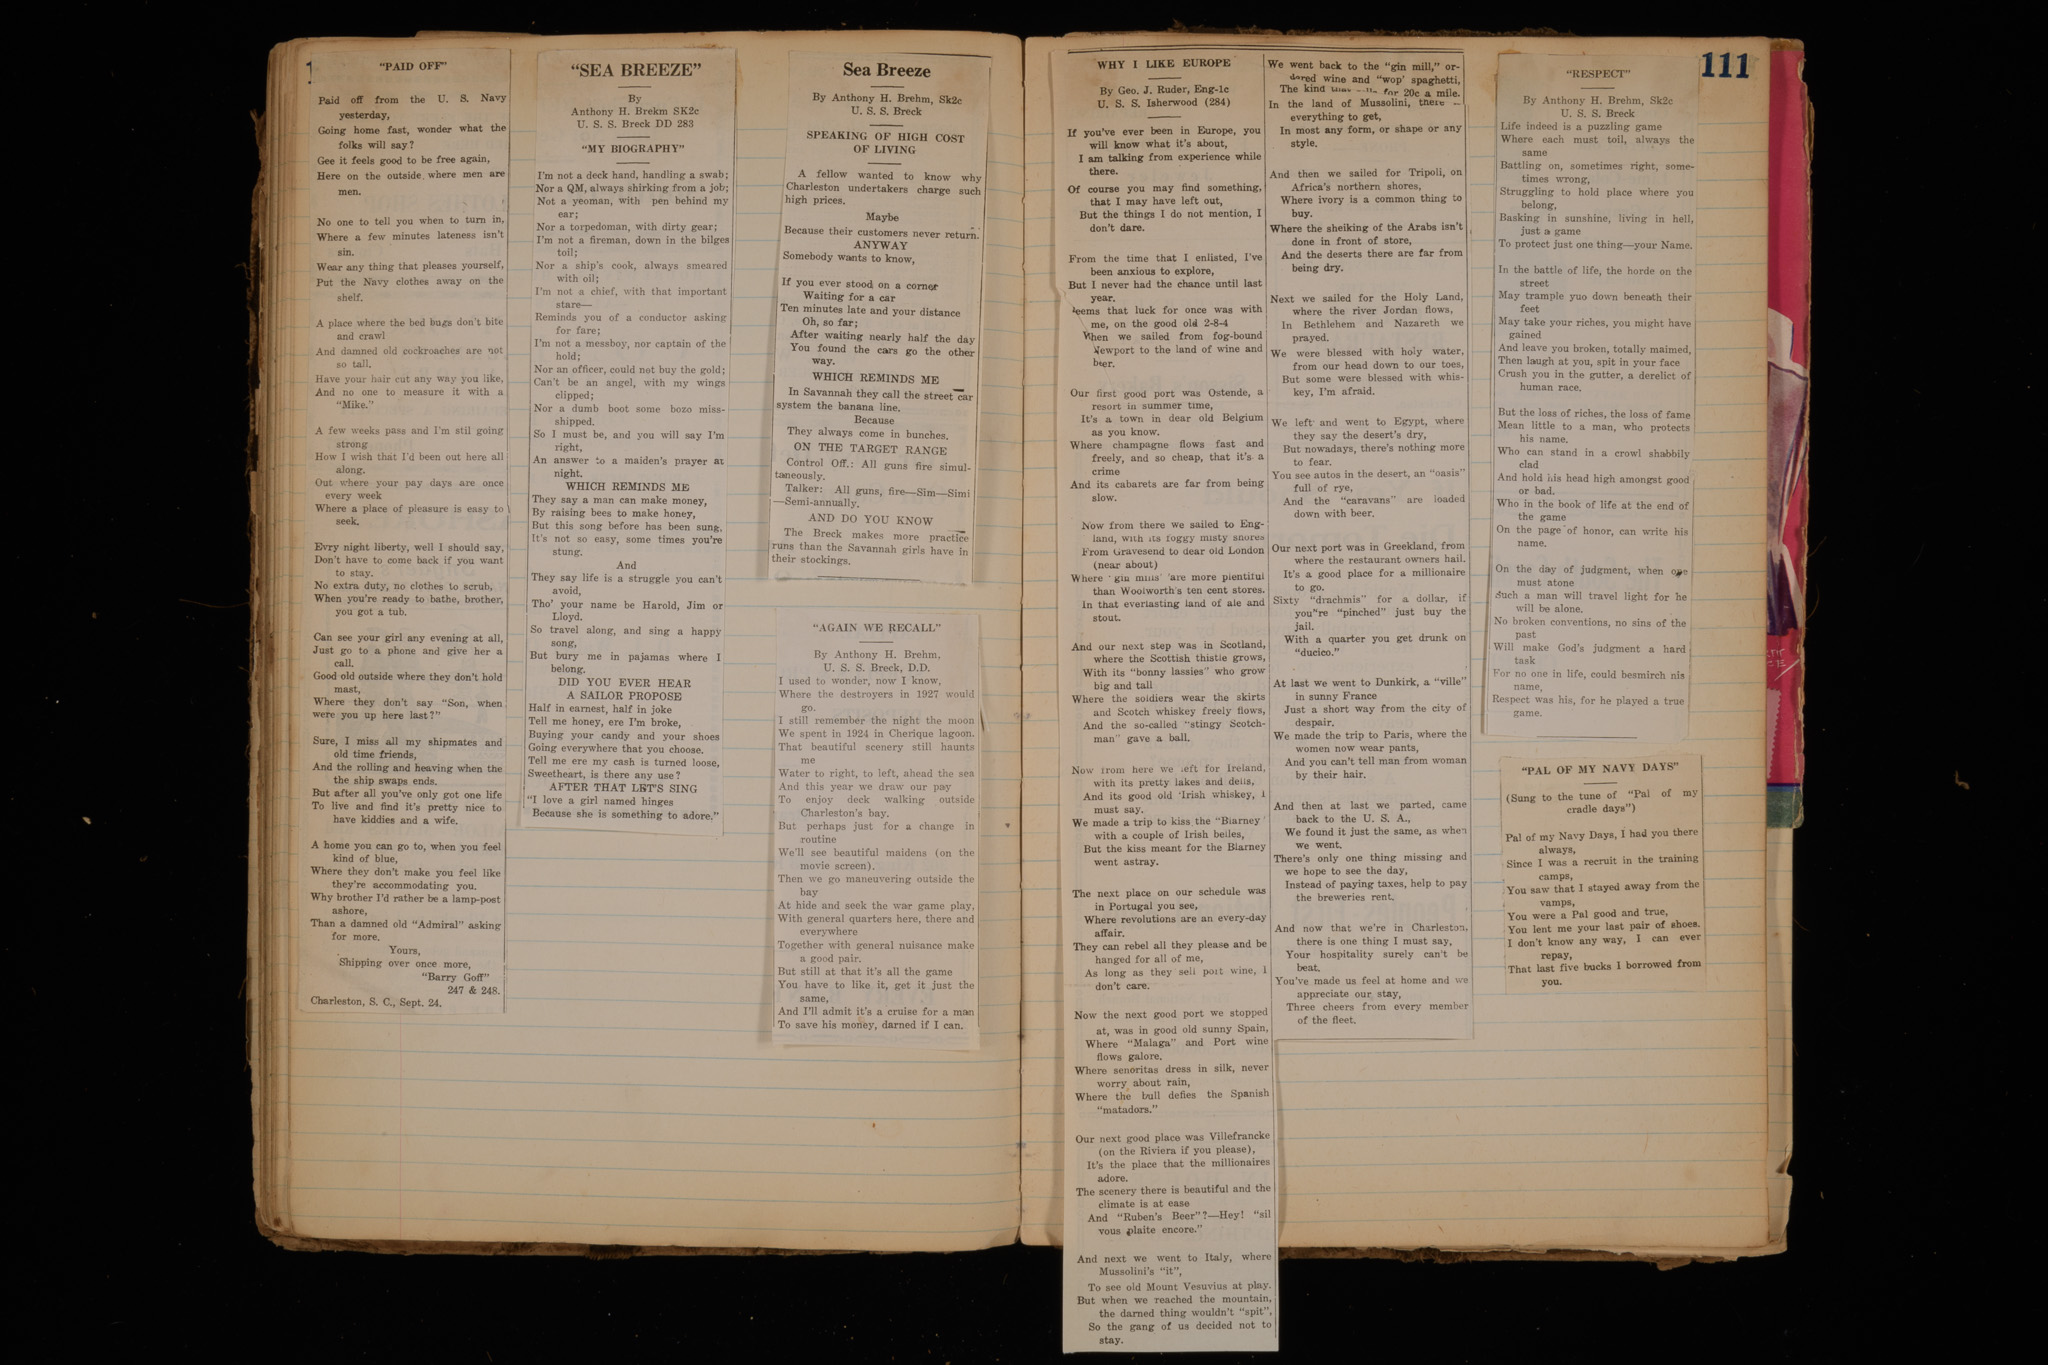 111
"PAID OFF"
Paid off from the U. S. Navy
yesterday,
Going home fast, wonder what the
folks will say?
Gee it feels good to be free again,
Here on the outside where men are
men.
No one to tell you when to turn in,
Where a few minutes lateness isn't
sin.
Wear any thing that pleases yourself,
Put the Navy clothes away on the
shelf.
A place where the bed bugs don't bite
and crawl
And damned old cockroaches are not
so tall.
Have your hair cut any way you like,
And no one to measure it with a
"Mike."
A few weeks pass and I'm stil going
strong
How I wish that I'd been out here all
along.
Out where your pay days are once
every week
Where a place of pleasure is easy to
seek.
Evry night liberty, well I should say,
Don't have to come back if you want
to stay.
No extra duty, no clothes to scrub,
When you're ready to bathe, brother,
you got a tub.
Can see your girl any evening at all,
Just go to a phone and give her a
call.
Good old outside where they don't hold
mast,
Where they don't say "Son, when
were you up here last?"
Sure, I miss all my shipmates and
old time friends,
And the rolling and heaving when the
the ship swaps ends.
But after all you've only got one life
To live and find it's pretty nice to
have kiddies and a wife.
A home you can go to, when you feel
kind of blue,
Where they don't make you feel like
they're accommodating you.
Why brother I'd rather be a lamp-post
ashore,
Than a damned old "Admiral" asking
for more.
Yours,
Shipping over once more,
"Barry Goff"
247 & 248.
Charleston, S. C., Sept. 24.
"SEA BREEZE"
By
Anthony H. Brekm SK2c
U. S. S. Breck DD 283
"MY BIOGRAPHY"
I'm not a deck hand, handling a swab;
Nor a QM, always shirking from a job;
Not a yeoman, with pen behind my
ear;
Nor a torpedoman, with dirty gear;
I'm not a fireman, down in the bilges
toil;
Nor a ship's cook, always smeared
with oil;
I'm not a chief, with that important
stare—
Reminds you of a conductor asking
for fare;
I'm not a messboy, nor captain of the
hold;
Nor an officer, could not buy the gold;
Can't be an angel, with my wings
clipped;
Nor a dumb boot some bozo miss-
shipped.
So I must be, and you will say I'm
right,
An answer to a maiden's prayer at
night.
WHICH REMINDS ME
They say a man can make money,
By raising bees to make honey,
But this song before has been sung,
It's not so easy, some times you're
stung.
And
They say life is a struggle you can't
avoid,
Tho' your name be Harold, Jim or
Lloyd.
So travel along, and sing a happy
song,
But bury me in pajamas where I
belong.
DID YOU EVER HEAR
A SAILOR PROPOSE
Half in earnest, half in joke
Tell me honey, ere I'm broke,
Buying your candy and your shoes
Going everywhere that you choose.
Tell me ere my cash is turned loose,
Sweetheart, is there any use?
AFTER THAT LET'S SING
"I love a girl named hinges
Because she is something to adore."
Sea Breeze
By Anthony H. Brehm, Sk2c
U. S. S. Breck
SPEAKING OF HIGH COST
OF LIVING
A fellow wanted to know why
Charleston undertakers charge such
high prices.
Maybe
Because their customers never return.
ANYWAY
Somebody wants to know,
If you ever stood on a corner
Waiting for a car
Ten minutes late and your distance
Oh, so far;
After waiting nearly half the day
You found the cars go the other
way.
WHICH REMINDS ME
In Savannah they call the street car
system the banana line.
Because
They always come in bunches.
ON THE TARGET RANGE
Control Off.: All guns fire simul-
taneously.
Talker: All guns, fire—Sim—Simi
—Semi-annually.
AND DO YOU KNOW
The Breck makes more practice
runs than the Savannah girls have in
their stockings.
"AGAIN WE RECALL"
By Anthony H. Brehm,
U. S. S. Breck, D.D.
I used to wonder, now I know,
Where the destroyers in 1927 would
go.
I still remember the night the moon
We spent in 1924 in Cherique lagoon.
That beautiful scenery still haunts
me
Water to right, to left, ahead the sea
And this year we draw our pay
To enjoy deck walking outside
Charleston's bay.
But perhaps just for a change in
routine
We'll see beautiful maidens (on the
movie screen).
Then we go maneuvering outside the
bay
At hide and seek the war game play,
With general quarters here, there and
everywhere
Together with general nuisance make
a good pair.
But still at that it's all the game
You have to like it, get it just the
same,
And I'll admit it's a cruise for a man
To save his money, darned if I can.
WHY I LIKE EUROPE
By Geo. J. Ruder, Eng-1c
U. S. S. Isherwood (284)
If you've ever been in Europe, you
will know what it's about,
I am talking from experience while
there.
Of course you may find something,
that I may have left out,
But the things I do not mention, I
don't dare.
From the time that I enlisted, I've
been anxious to explore,
But I never had the chance until last
year.
Seems that luck for once was with
me, on the good old 2-8-4
When we sailed from fog-bound
Newport to the land of wine and
beer.
Our first good port was Ostende, a
resort in summer time,
It's a town in dear old Belgium
as you know.
Where champagne flows fast and
freely, and so cheap, that it's a
crime
And its cabarets are far from being
slow.
Now from there we sailed to Eng-
land, with its foggy misty shores
From Gravesend to dear old London
(near about)
Where "gin mills" are more plentiful
than Woolworth's ten cent stores.
In that everlasting land of ale and
stout.
And our next step was in Scotland,
where the Scottish thistle grows,
With its "bonny lassies" who grow
big and tall
Where the soldiers wear the skirts
and Scotch whiskey freely flows,
And the so-called "stingy Scotch-
man" gave a ball.
Now from here we left for Ireland,
with its pretty lakes and dells,
And its good old 'Irish whiskey, I
must say.
We made a trip to kiss the "Blarney'
with a couple of Irish belles,
But the kiss meant for the Blarney
went astray.
The next place on our schedule was
in Portugal you see,
Where revolutions are an every-day
affair.
They can rebel all they please and be
hanged for all of me,
As long as they sell port wine, I
don't care.
Now the next good port we stopped
at, was in good old sunny Spain,
Where "Malaga" and Port wine
flows galore.
Where senoritas dress in silk, never
worry about rain,
Where the bull defies the Spanish
"matadors."
Our next good place was Villefrancke
(on the Riviera if you please),
It's the place that the millionaires
adore.
The scenery there is beautiful and the
climate is at ease
And "Ruben's Beer"?—Hey! "sil
vous plaite encore."
And next we went to Italy, where
Mussolini's "it",
To see old Mount Vesuvius at play.
But when we reached the mountain,
the darned thing wouldn't "spit",
So the gang of us decided not to
stay.
We went back to the "gin mill," or-
dered wine and "wop' spaghetti,
The kind that for 20c a mile.
In the land of Mussolini, there
everything to get,
In most any form, or shape or any
style.
And then we sailed for Tripoli, on
Africa's northern shores,
Where ivory is a common thing to
buy.
Where the sheiking of the Arabs isn't
done in front of store,
And the deserts there are far from
being dry.
Next we sailed for the Holy Land,
where the river Jordan flows,
In Bethlehem and Nazareth we
prayed.
We were blessed with holy water,
from our head down to our toes,
But some were blessed with whis-
key, I'm afraid.
We left and went to Egypt, where
they say the desert's dry,
But nowadays, there's nothing more
to fear.
You see autos in the desert, an "oasis"
full of rye,
And the "caravans" are loaded
down with beer.
Our next port was in Greekland, from
where the restaurant owners hail.
It's a good place for a millionaire
to go.
Sixty "drachmis" for a dollar, if
you"re "pinched" just buy the
jail.
With a quarter you get drunk on
"ducico."
At last we went to Dunkirk, a "ville"
in sunny France
Just a short way from the city of
despair.
We made the trip to Paris, where the
women now wear pants,
And you can't tell man from woman
by their hair.
And then at last we parted, came
back to the U. S. A.,
We found it just the same, as when
we went.
There's only one thing missing and
we hope to see the day,
Instead of paying taxes, help to pay
the breweries rent.
And now that we're in Charleston,
there is one thing I must say,
Your hospitality surely can't be
beat.
You've made us feel at home and we
appreciate our stay,
Three cheers from every member
of the fleet.
"RESPECT"
By Anthony H. Brehm, Sk2c
U. S. S. Breck
Life indeed is a puzzling game
Where each must toil, always the
same
Battling on, sometimes right, some-
times wrong,
Struggling to hold place where you
belong,
Basking in sunshine, living in hell,
just a game
To protect just one thing—your Name.
In the battle of life, the horde on the
street
May trample yuo down beneath their
feet
May take your riches, you might have
gained
And leave you broken, totally maimed,
Then laugh at you, spit in your face
Crush you in the gutter, a derelict of
human race.
But the loss of riches, the loss of fame
Mean little to a man, who protects
his name.
Who can stand in a crowl shabbily
clad
And hold his head high amongst good
or bad.
Who in the book of life at the end of
the game
On the page of honor, can write his
name.
On the day of judgment, when one
must atone
Such a man will travel light for he
will be alone.
No broken conventions, no sins of the
past
Will make God's judgment a hard
task
For no one in life, could besmirch his
name,
Respect was his, for he played a true
game.
"PAL OF MY NAVY DAYS"
(Sung to the tune of "Pal of my
cradle days")
Pal of my Navy Days, I had you there
always,
Since I was a recruit in the training
camps,
You saw that I stayed away from the
vamps,
You were a Pal good and true,
You lent me your last pair of shoes.
I don't know any way, I can ever
repay,
That last five bucks I borrowed from
you.